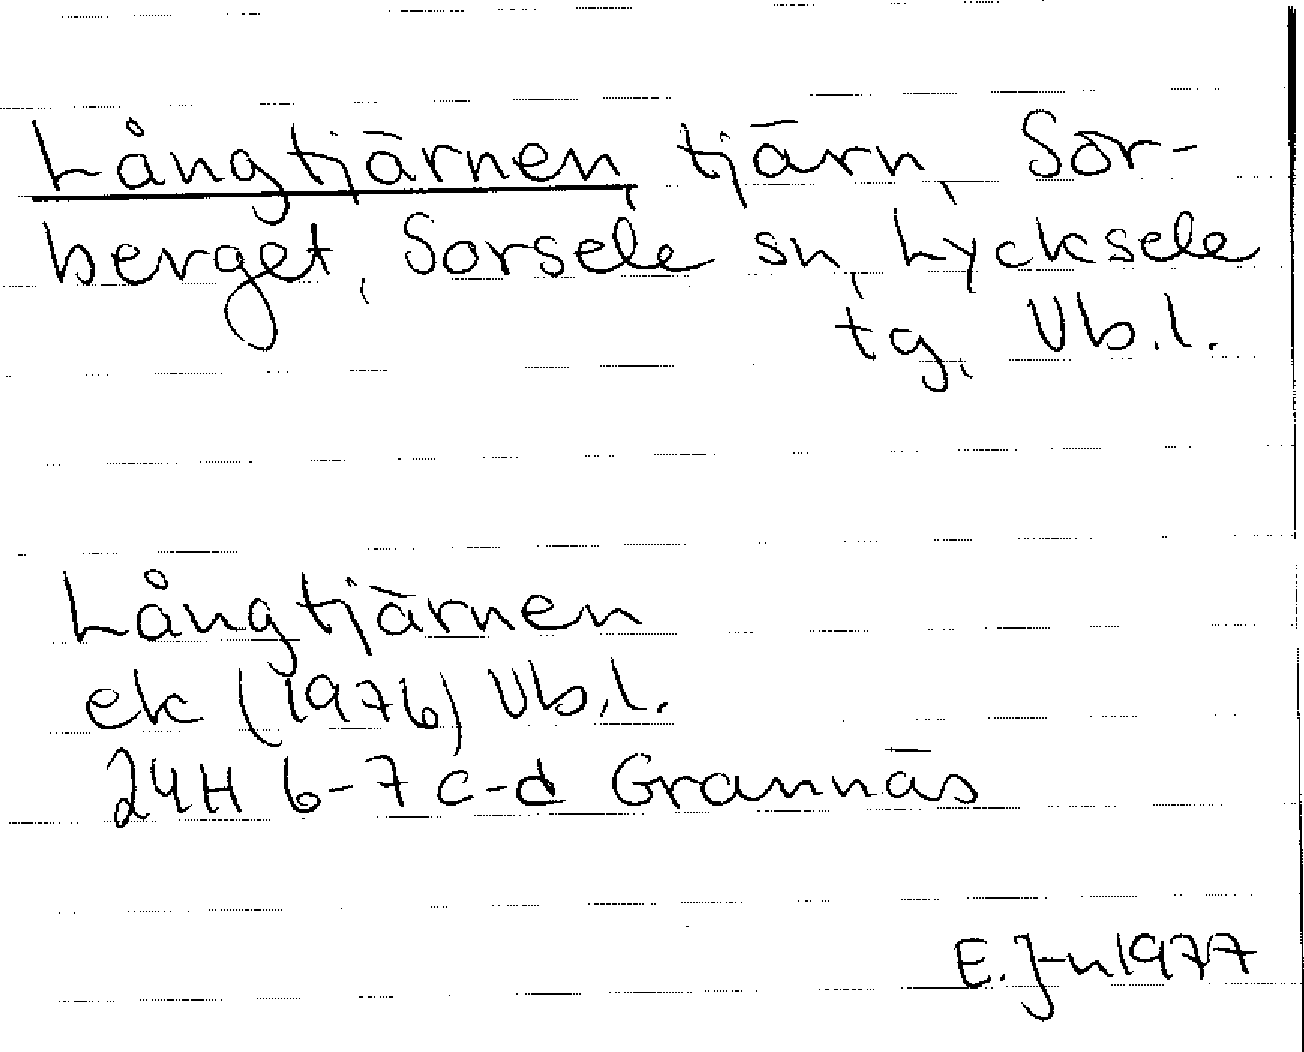 Långtjärnen, tjärn, Sör-
berget, Sorsele sn, Lycksele
tg, Vb.l.
Långtjärnen
ek (1976) Vb.l.
24H 6-7 c-d Grannäs
E. J-n 1977